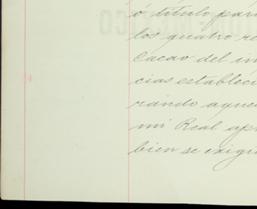 ó título par
los quatro re
Cacao del in
cias establecí
rando aque
mi Real apr
bien se exigi